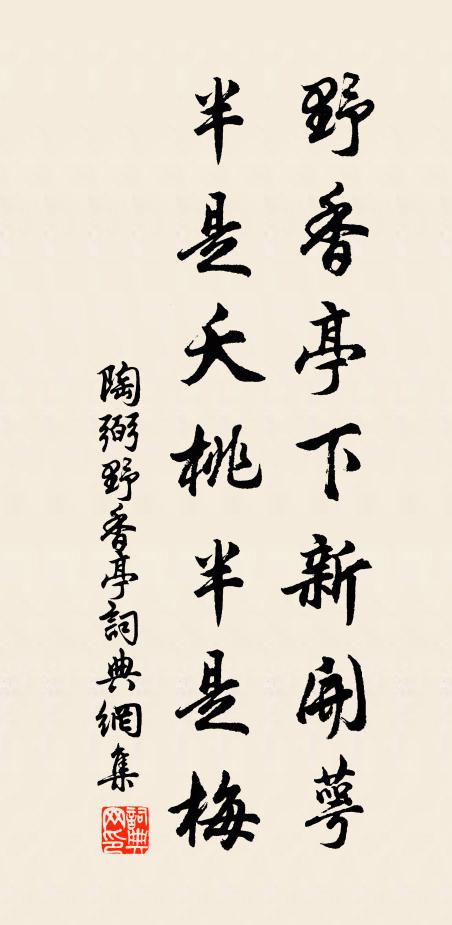 野香亭下新開萼
半是夭桃半是梅
陶弼野香亭詞典網集
詞典网印